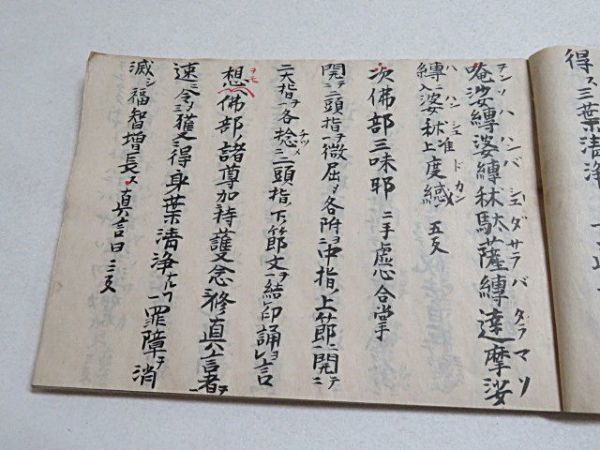 得ス三業清浄
唵娑縛婆縛秫駄薩縛達摩娑
縛婆秫上度憾 五反
次佛部三昧耶 二手虚心合掌
開二頭指ヲ微屈メ各附中指ノ上節ニ開テ
二大指ヲ各捻二頭指ノ下節文ヲ結印誦言
想ヘ佛部ノ諸尊加持護念修真言者ヲ
速ニ令獲得身業清浄 罪障ヲ消
滅シ福智増長ス真言曰 三反